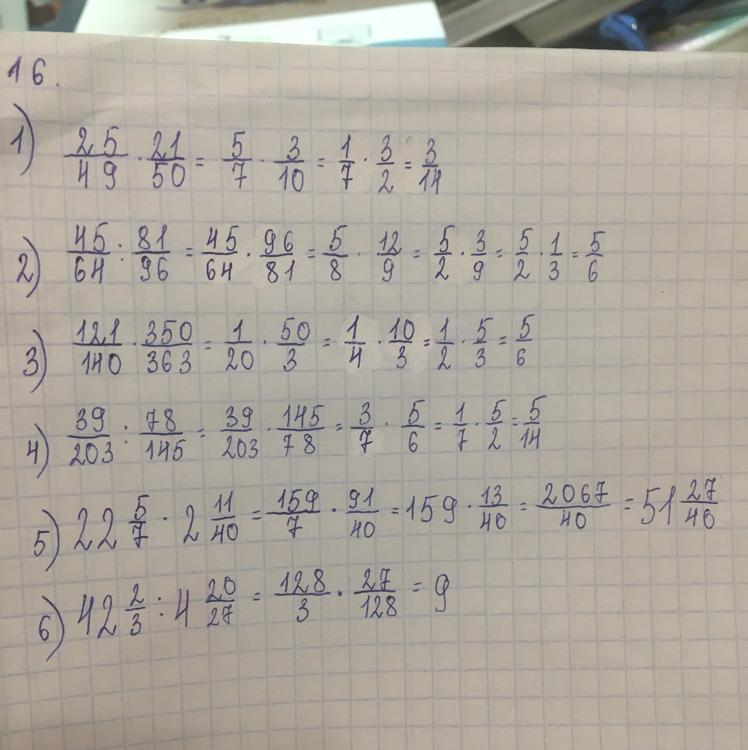 16.
1) 25/49 · 21/50 = 5/7 · 3/10 = 1/7 · 3/2 = 3/14
2) 45/64 : 81/96 = 45/64 · 96/81 = 5/8 · 12/9 = 5/2 · 3/9 = 5/2 · 1/3 = 5/6
3) 121/140 · 350/363 = 1/20 · 50/3 = 1/4 · 10/3 = 1/2 · 5/3 = 5/6
4) 39/203 : 78/145 = 39/203 · 145/78 = 3/7 · 5/6 = 1/7 · 5/2 = 5/14
5) 22 5/7 · 2 11/40 = 159/7 · 91/40 = 159 · 13/40 = 2067/40 = 51 27/40
6) 42 2/3 : 4 20/27 = 128/3 · 27/128 = 9